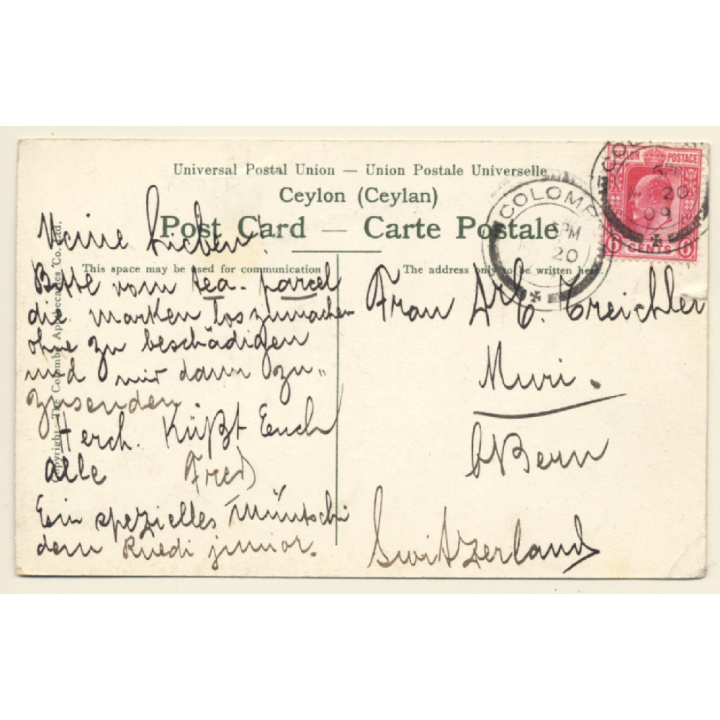 Universal Postal Union — Union Postale Universelle
Ceylon (Ceylan)
Post Card — Carte Postale
This space may be used for communication
The address only to be written here
Copyright. The Colombo Apothecaries Co. Ltd.
Meine Lieben!
Bitte vom tea-parcel
die marken loszumachen
ohne zu beschädigen
und mir dann zu-
zusenden.
Herch. Küßt Euch
alle Fred
Ein spezielles Müntschi
dem Ruedi junior.
Frau Dr E. Treichler
Muri.
b/Bern
Switzerland
COLOMB
5PM
20
POSTAGE
20
09
6 CENTS 6